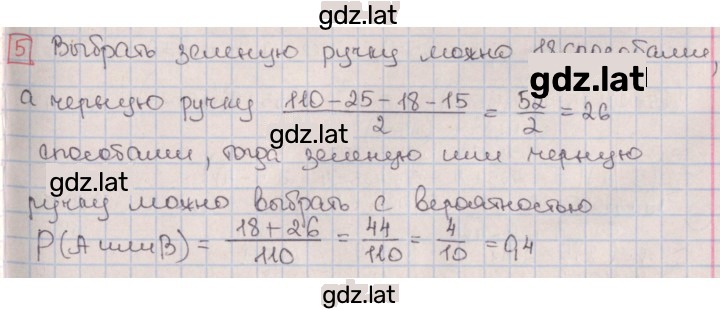 gdz.lat
5 Выбрать зеленую ручку можно 18 способами,
gdz.lat
а черную ручку (110-25-18-15)/2 = 52/2 = 26
gdz.lat
способами, тогда зеленую или черную
gdz.lat
ручку можно выбрать с вероятностью
P(A или B) = (18+26)/110 = 44/110 = 4/10 = 0,4
gdz.lat